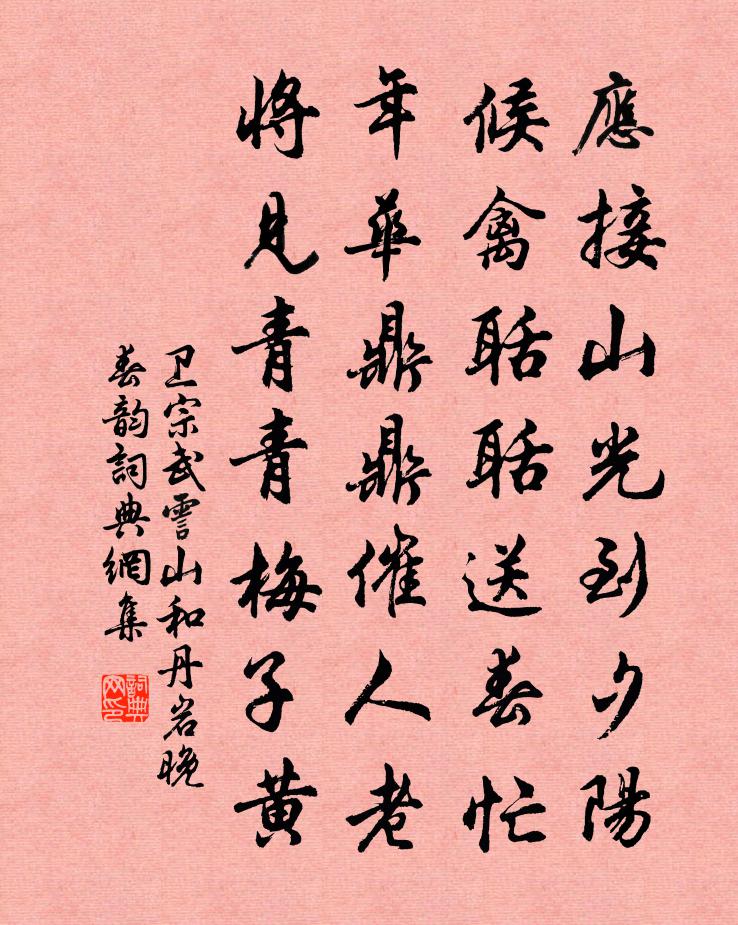 應接山光到夕陽
候禽聒聒送春忙
年華鼎鼎催人老
將見青青梅子黄
卫宗武雲山和丹岩晚
春韵詞典網集
詞典
网印